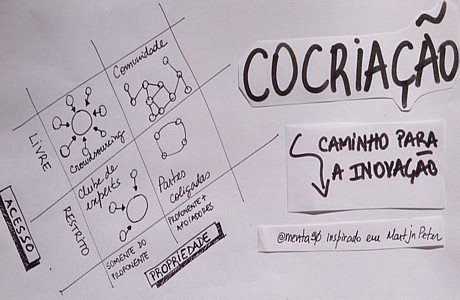 COCRIAÇÃO
CAMINHO PARA
A INOVAÇÃO
inspirado em Martijn Pater
LIVRE
RESTRITO
ACESSO
Crowdsourcing
Comunidade
Clube de
experts
Partes
coligadas
SOMENTE DO
PROPONENTE
PROPONENTE +
APOIADORES
PROPRIEDADE